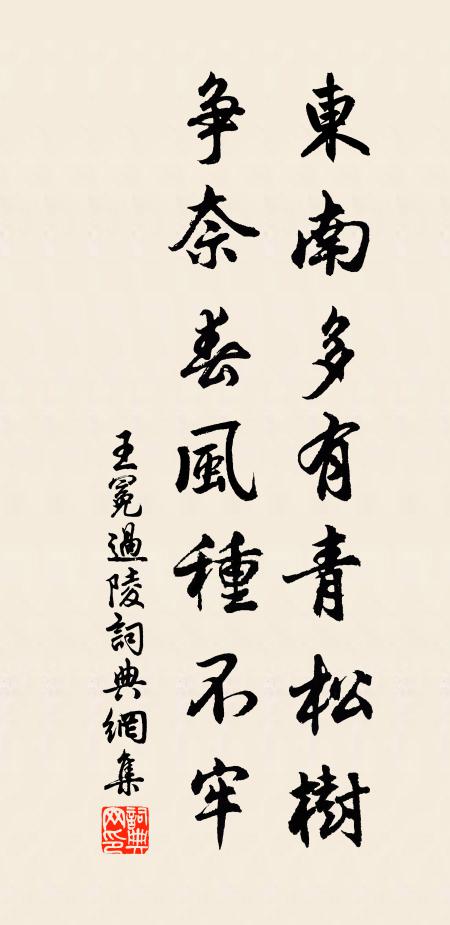 東南多有青松樹
争奈春風種不牢
王冕過陵詞典網集
詞典网印